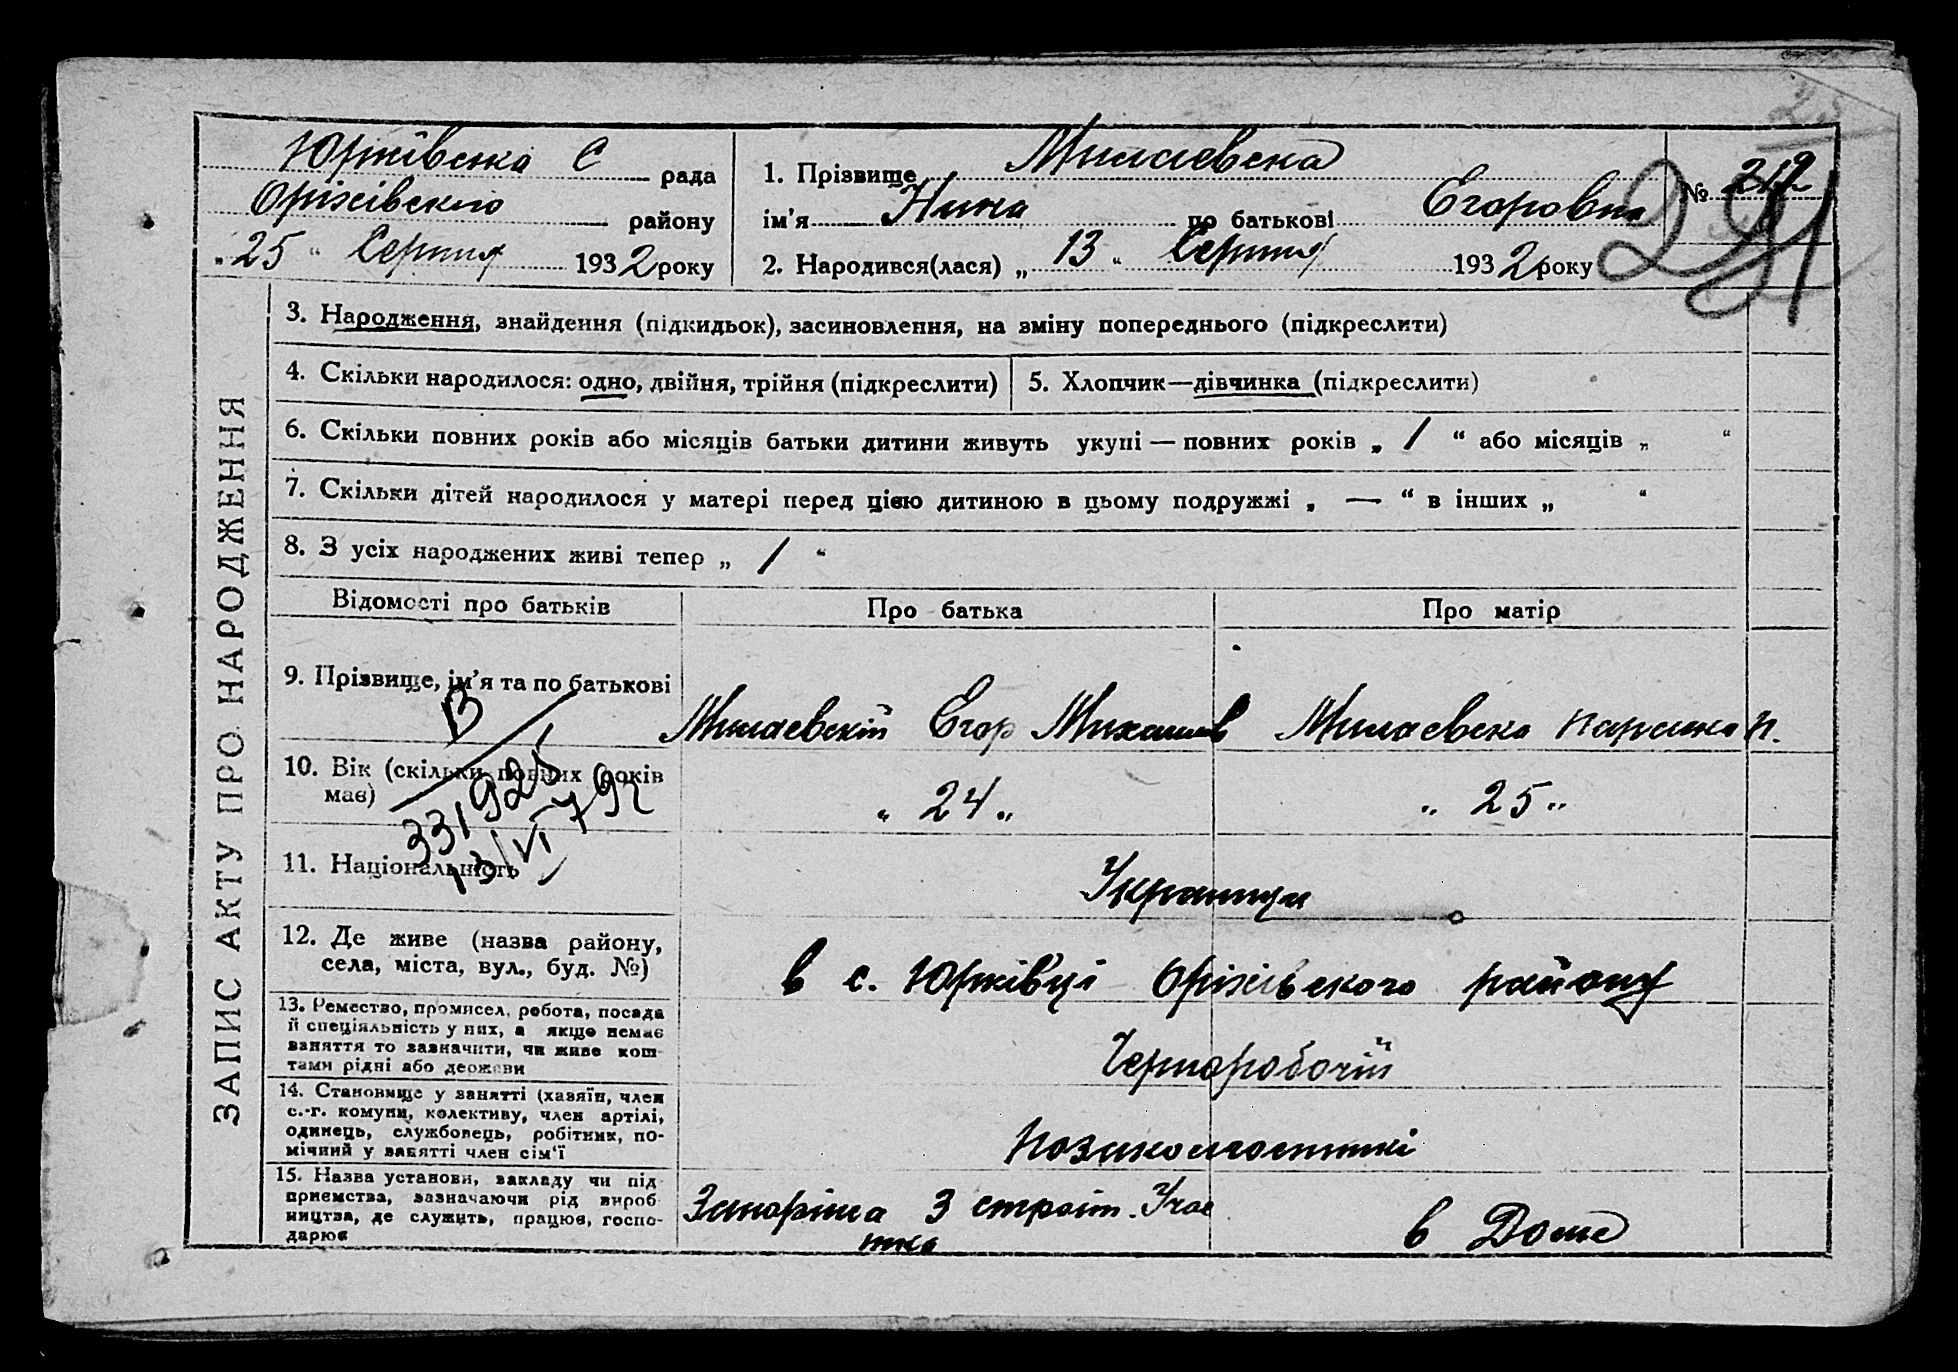 Юрківська С рада
Оріхівського району
„25“ Серпня 1932 року
1. Прізвище Милаевска
ім'я Нина по батькові Егоровна
2. Народився(лася) „13“ Серпня 1932 року
№ 212
291
ЗАПИС АКТУ ПРО НАРОДЖЕННЯ
3. Народження, знайдення (підкидьок), засиновлення, на зміну попереднього (підкреслити)
4. Скільки народилося: одно, двійня, трійня (підкреслити)
5. Хлопчик—дівчинка (підкреслити)
6. Скільки повних років або місяців батьки дитини живуть укупі — повних років „ / “ або місяців „ “
7. Скільки дітей народилося у матері перед цією дитиною в цьому подружжі „ — “ в інших „ “
8. З усіх народжених живі тепер „ / “
Відомості про батьків
Про батька
Про матір
9. Прізвище, ім'я та по батькові
Милаевский Егор Михайлов
Милаевска Параска П.
В
331925
13/VI 79г
10. Вік (скільки повних років
має)
„ 24 „
„ 25 „
11. Національність
Українци
12. Де живе (назва району,
села, міста, вул., буд. №)
в с. Юрківці Оріхівського району
13. Ремество, промисел, робота, посада
й спеціяльність у них, а якщо немає
заняття то зазначити, чи живе кош-
тами рідні або держави
Чернаробочий
14. Становище у занятті (хазяїн, член
с.-г. комуни, колективу, член артілі,
одинець, службовець, робітник, по-
мічний у занятті член сім'ї
15. Назва установи, закладу чи під-
приємства, зазначаючи рід вироб-
ництва, де служить, працює, госпо-
дарює
З строит. Учас
тка
в Доме